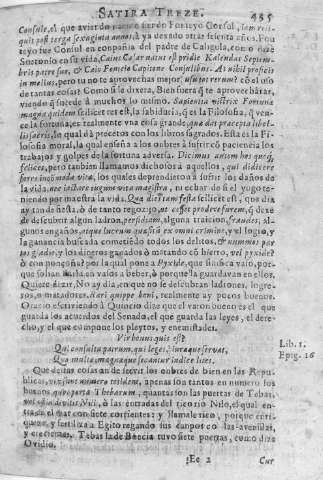 SATIRA TREZE. 435
Consule, el que
quis post terga reliquit à ya desado atras
teyo fue Consul en conpañia del padre de Caligula, como dize
Suetonio en su vida, Caius Cesar natus est pridie Kalendas Septem-
bris patre suo, & Caio Fonteio Capitone Consulibus. At nihil proficis
in melius, pero tu no te aprovechas mejor, usu tot rerum? cõ el uso
de tantas cosas? Como si le dixera, Bien fuera q̃ te aprovechàras,
viendo q̃ sucede à muchos lo mismo. Sapientia victrix Fortunæ
magna quidem scilicet
ce la fortuna, es realmente una cosa grande, quæ dat præcepta libel-
lis sacris, la qual dà precetos con los libros sagrados. Esta es la Fi-
losofia moral, la qual enseña a los onbres à sufrir cõ paciencia los
trabajos y golpes de la fortuna adversa. Dicimus autem hos quoq̃
felices, pero tanbien llamamos dichosos a aquellos, qui didicere
ferre incommoda vitæ, los quales deprendieron à sufrir los daños de
la vida, nec iactare iugum vita magistra, ni echar de si el yugo te-
niendo por maestra la vida. Quæ dies tam festa
ay tan de fiesta, ò de tanto regozijo, ut cesset prodere furem, q̃ dexe
de descubrir algun ladron, perfidiam, alguna traicion, fraudes, al-
gunos engaños, atque lucrum quæsitum ex omni crimine, y el logro, y
la ganancia buscada cometiẽdo todos los delitos, & nummos par-
tos gladio, y los dineros ganados ò matando cõ hierro, vel pyxide?
ò con ponçoña? por la qual pone à Pyxide, que sinifica vaso, por-
que solian darla en vasos a beber, ò porque la guardavan en ellos.
Quiere dezir, No ay dia, en que no se descubran ladrones, logre-
ros, o matadores. Rari quippe boni, realmente ay pocos buenos.
Oracio escriviendo à Quincio dize que el varon bueno es el que
guarda los acuerdos del Senado, el que guarda las leyes, el dere-
cho, y el que compone los pleytos, y enemistades.
Vir bonus quis est?
Qui consulta patrum, qui leges, iuraque servat,
Quo multa, magnæque secantur iudice lites.
Lib. 1.
Epig. 16
Que destas cosas an de servir los onbres de bien en las Repu-
blicas, vix sunt numero totidem, apenas son tantos en numero los
buenos quot portæ Thebarum, quantas son las puertas de Tebas,
vel ostia divitis Nili, ò las entradas del rico rio Nilo, el qual en-
tra en el mar con siete corrientes: y llamale rico, porque enri-
quece, y fertiliza a Egito regando sus canpos con las avenidas,
y crecientes. Tebas la de Boecia tuvo siete puertas, como dize
Ovidio.
Ee 2 Cur